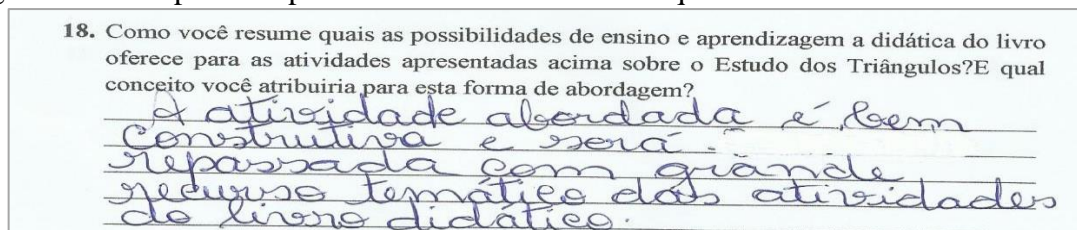 18. Como você resume quais as possibilidades de ensino e aprendizagem a didática do livro
oferece para as atividades apresentadas acima sobre o Estudo dos Triângulos?E qual
conceito você atribuiria para esta forma de abordagem?
A atividade abordada é bem
construtiva e será
repassada com grande
recurso temático das atividades
do livro didático.